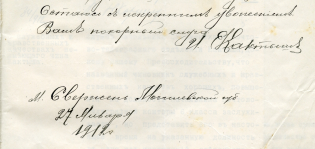 Остаюсь съ искреннимъ уваженіемъ
Вашъ покорный слуга
И.
м. Свержень Могилевской губ
27 Января
1912 г